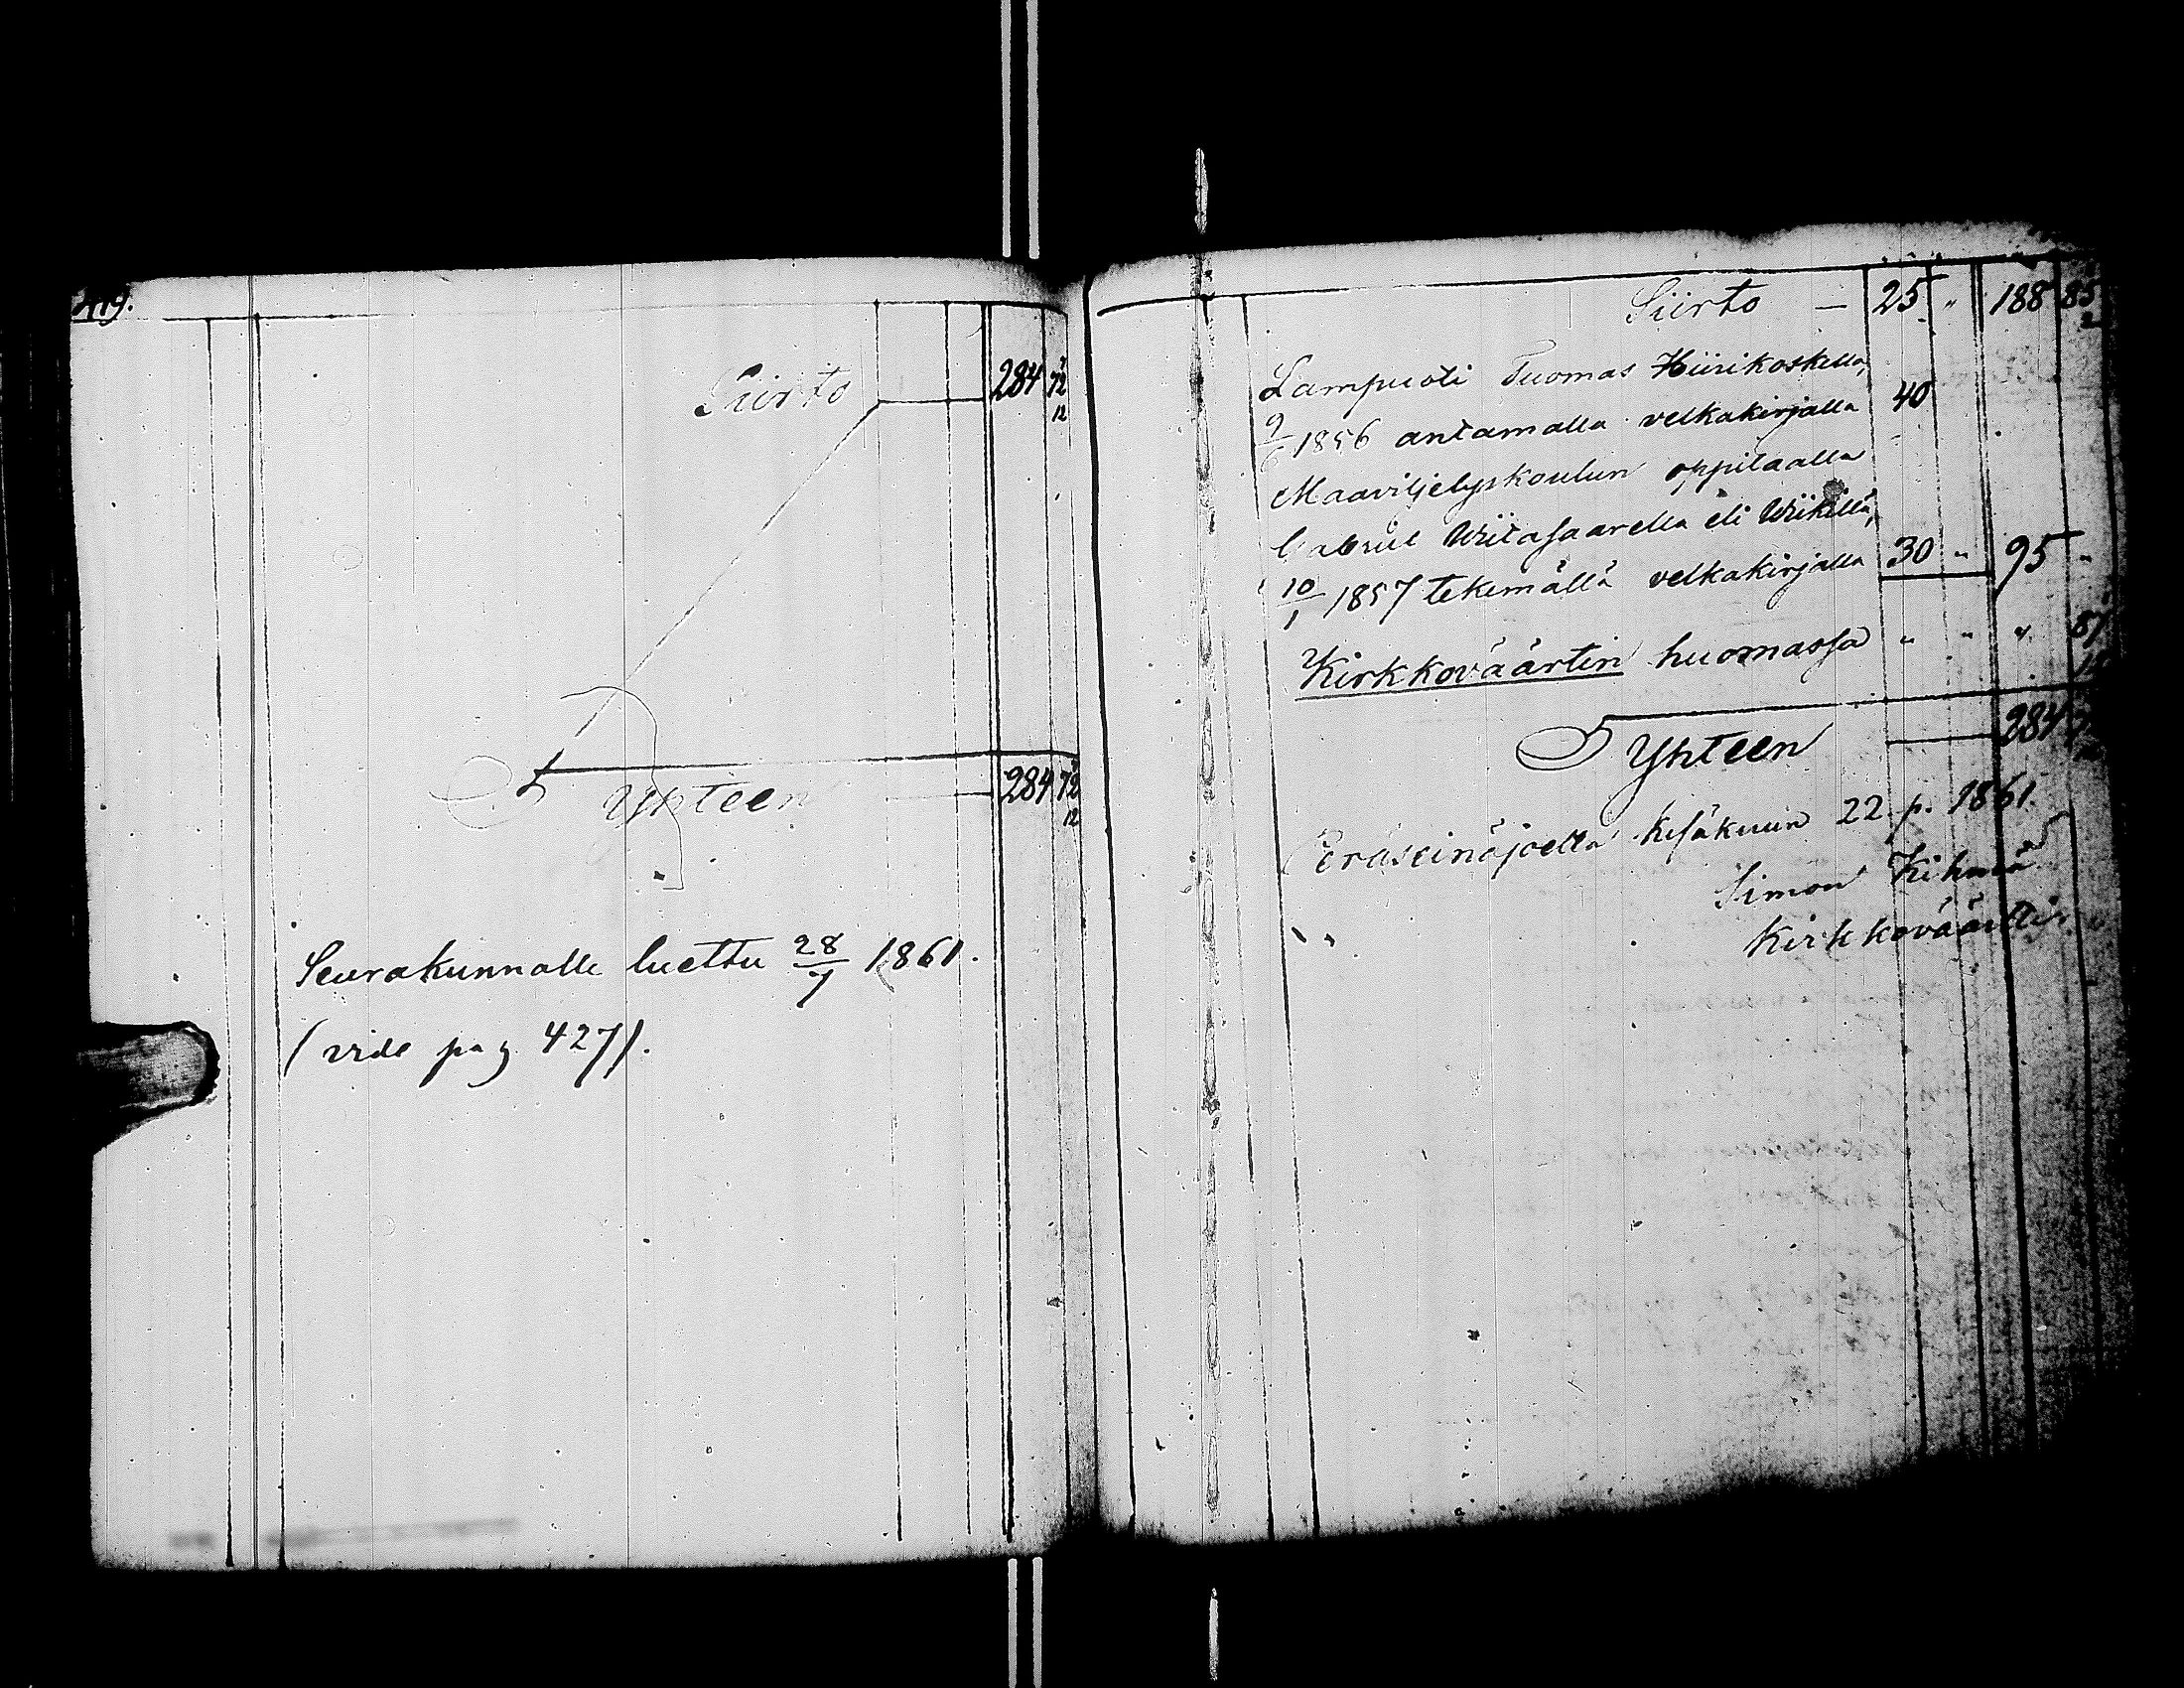 419.
Siirto 284 72
12
Yhteen 284 72
12
Seurakunnalle luettu 28/7 1861.
(vide pag 427).
Siirto — 25 " 188 85
Lampuoti Tuomas Hiirikoskella,
9/6 1856 antamalla velkakirjalla 40
Maaviljelyskoulun oppilaalla
Gabriel Wiitasaarella eli Wiikillä,
10/1 1857 tekemällä velkakirjalla 30 " 95 "
Kirkkoväärtin huomassa " " " 87
Yhteen 284
Peräseinäjoella Kesäkuun 22 p. 1861.
Simon Kihmä
Kirkkoväärtti